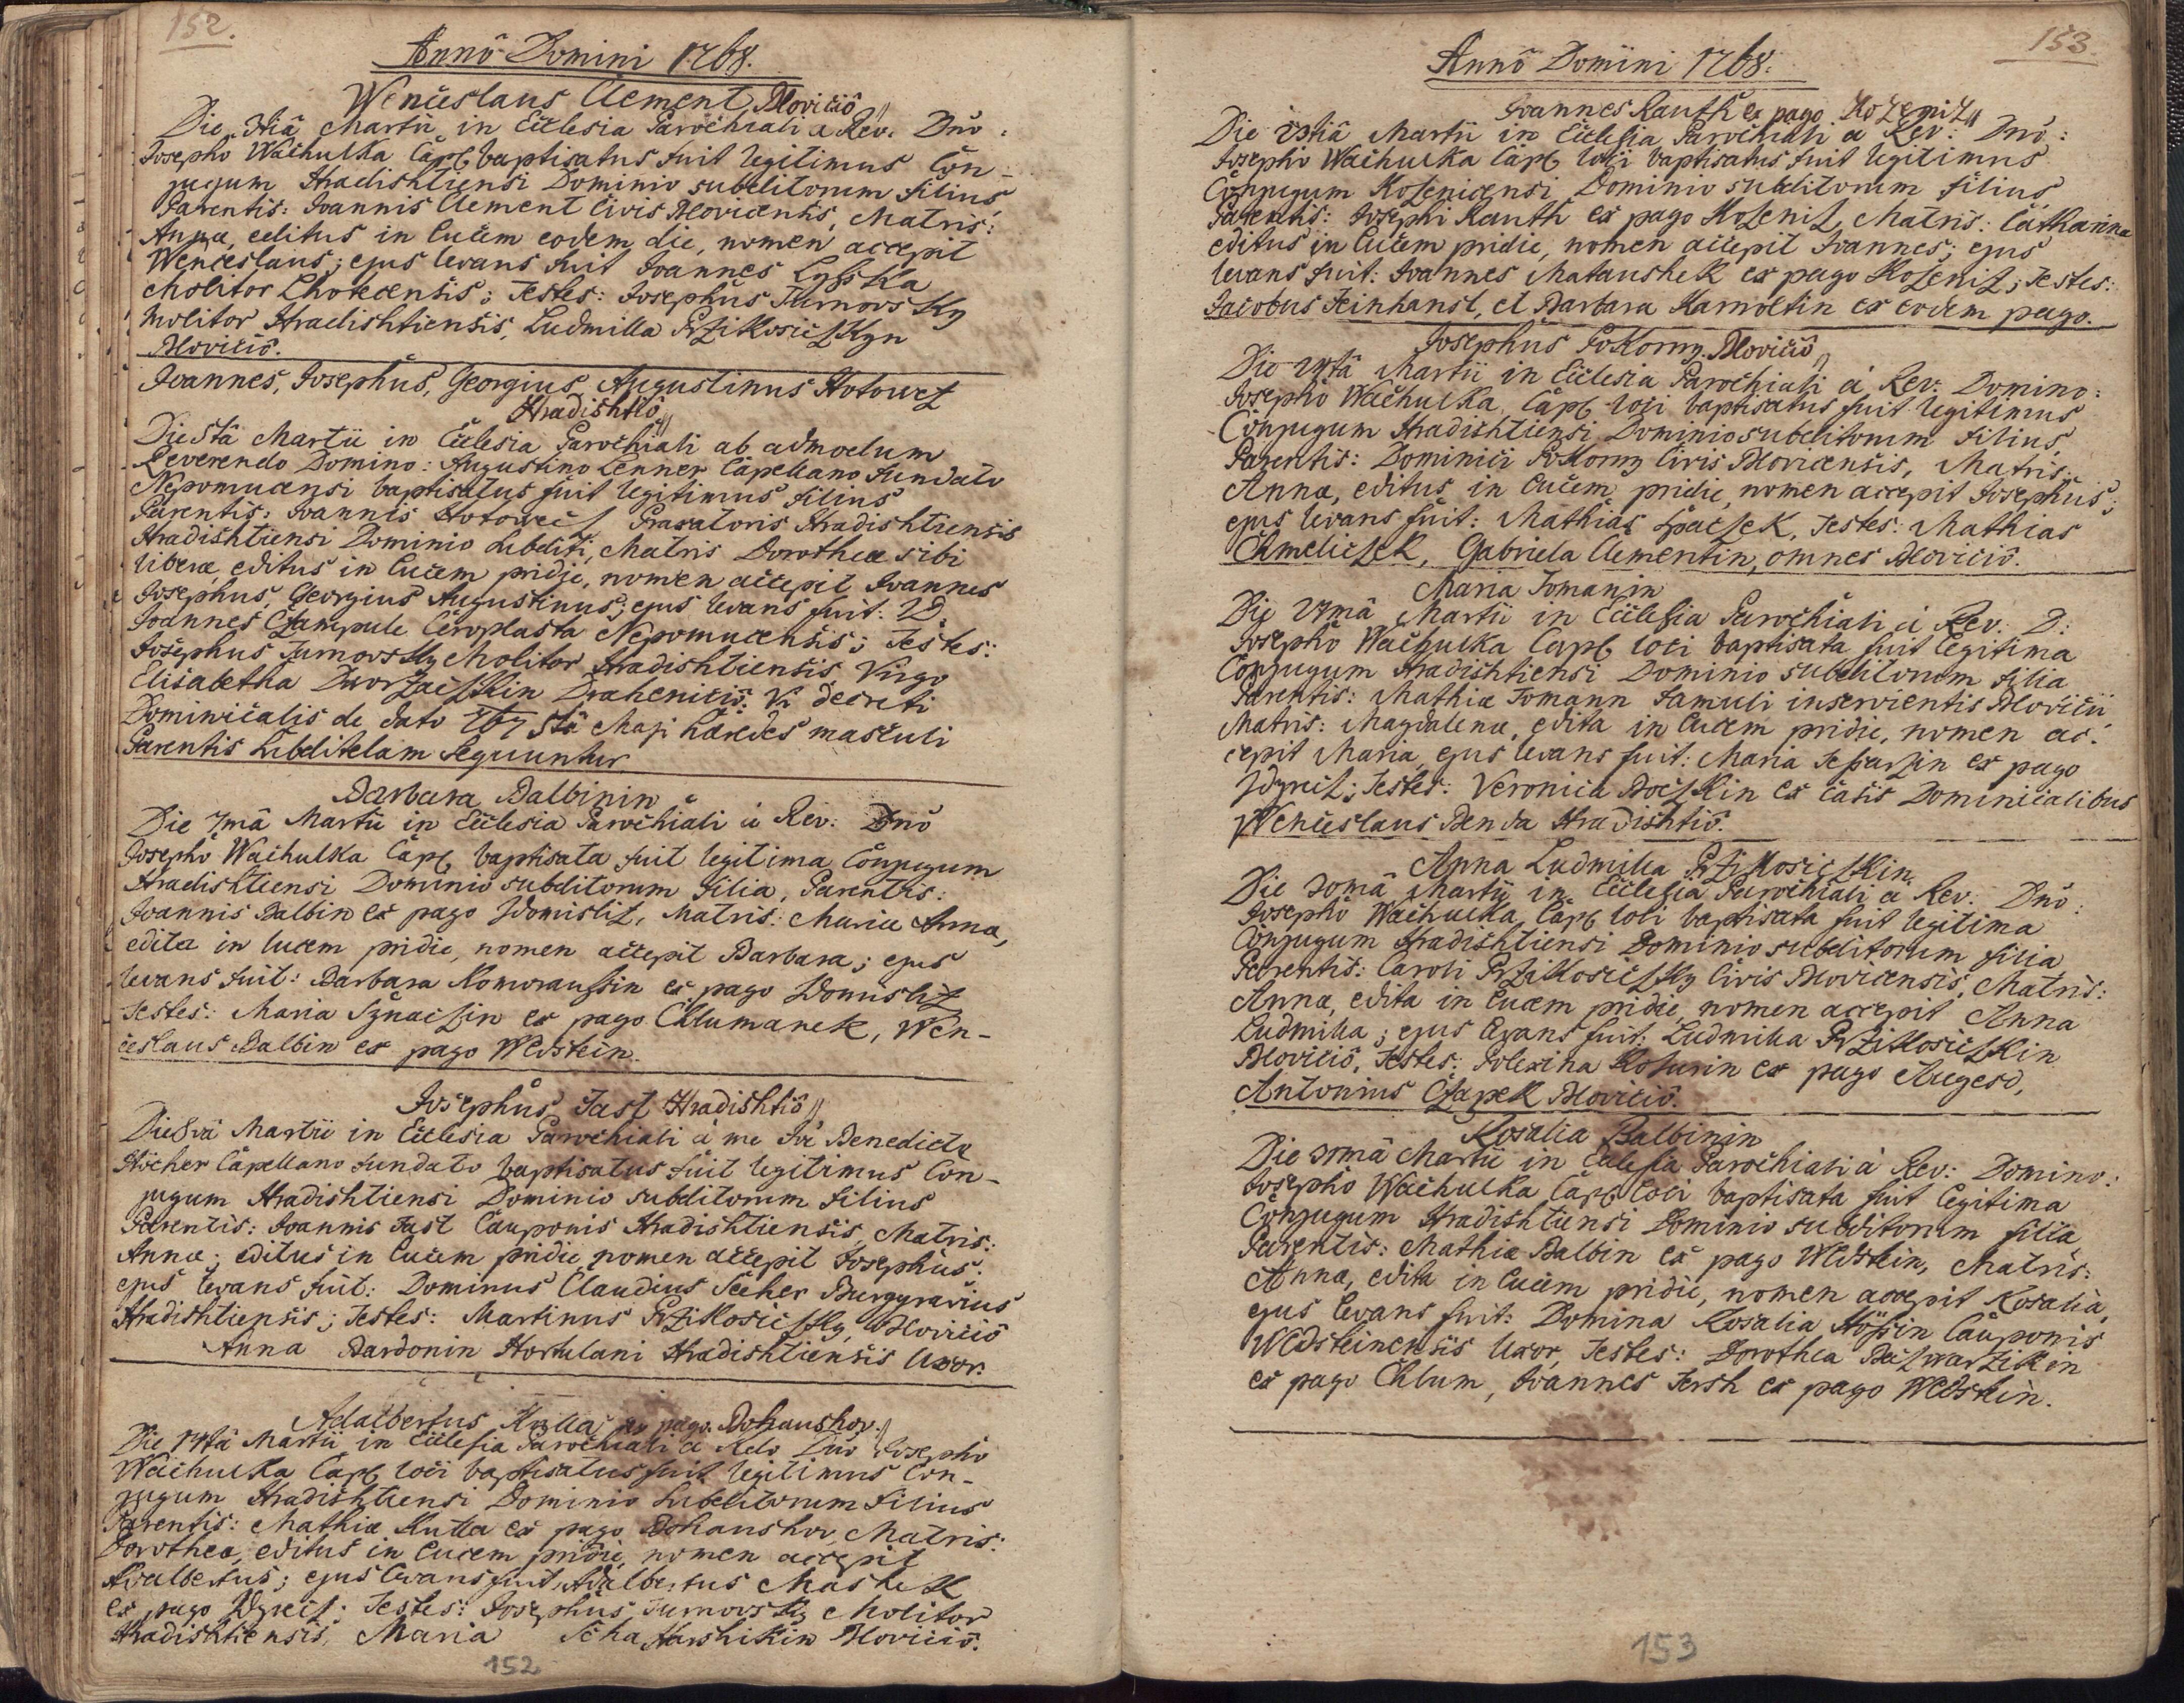 152.
Annô Domini 1768.
Wenceslaus Clement Blovicio
Die 3tiâ Martii in Ecclesia Parochiali a Rev: Dno:
Josepho Wachulka Capl baptisatus fuit legitimus Con-
jugum Hradishtiensi Dominio subditorum filius
Parentis: Joannis Clement Civis Blovicensis, Matris:
Annæ, editus in lucem eodem die, nomen accepit
Wenceslaus; ejus levans fuit Joannes
Molitor Chotecensis; Testes: Josephus Turnovsky
molitor Hradishtiensis, Ludmilla PrziKosiczkyn
Blovicio.
Joannes, Josephus, Georgius, Augustinus Hotowez
Hradishtio
Die 5tâ Martii in Ecclesia Parochiali ab admodum
Reverendo Domino: Augustino Lenner Capellano fundato
Nepomucensi baptisatus fuit legitimus filius
Parentis: Joannis Hotowecz Hradishtiensis
Hradishtiensi Dominio subditi, Matris Dorotheæ sibi
liberæ, editus in lucem pridie, nomen accepit Joannes
Josephus, Georgius Augustinus; ejus levans fuit: D.
Joannes Czampule Ceroplasta Nepomucensis; Testes:
Josephus Turnovsky Molitor Hradishtiensis, Virgo
Elisabetha DworzaczKin Drahenicio. Vi decreti
Dominicalis de dato 1767 5tâ Maji hæredes masculi
Parentis subditelam sequuntur
Barbara Balbinin
Die 7mâ Martii in Ecclesia Parochiali à Rev: Dnô
Josephô Wachulka Capl baptisata fuit legitima Conjugum
Hradishtiensi Dominio subditorum filia, Parentis:
Joannis Balbin ex pago Zdomisliz, Matris: Mariæ Annæ,
edita in lucem pridie, nomen accepit Barbara; ejus
levans fuit: Barbara Komoraussin ex pago Zdomisliz
Testes: Maria ex pago Chlumanek, Wen-
ceslaus Balbin ex pago Wldstein.
Josephus Fast Hradishtiô
Die 8vâ Martii in Ecclesia Parochiali à me Benedicto
Höcher Capellano fundato baptisatus fuit legitimus Con-
jugum Hradishtiensi Dominio subditorum filius
Parentis: Joannis Fast Cauponis Hradishtiensis, Matris:
Annæ; editus in lucem pridie nomen accepit Josephus;
ejus levans fuit: Dominus Claudius Burggravius
Hradishtiensis; Testes: Martinus PrziKosiczky Blovicio
Anna Bardonin Hortulani Hradishtiensis Uxor.
Adalbertus Kutta ex pago Dohaushov.
Die 14tâ Martii in Ecclesia Parochiali a Rdo Dno Josepho
Wachulka Capl loci baptisatus fuit legitimus Con-
jugum Hradishtiensi Dominio subditorum filius
Parentis: Mathiæ Kutta ex pago Dohaushov, Matris:
Dorotheæ, editus in lucem pridie, nomen accepit
Adalbertus; ejus levans fuit Adalbertus Mashek
ex pago Zdyrecz; Testes: Josephus Turnovsky Molitor
Hradishtiensis, Maria Blovicio.
152
153.
Annô Domini 1768:
Joannes Rauth ex pago Kozeniz
Die Martii in Ecclesia Parochiali a Rev: Dno:
Josepho Wachulka Capl loci baptisatus fuit legitimus
Conjugum Kozenicensi Dominio subditorum filius,
Parentis: Josephi Rauth ex pago Kozeniz, Matris: Catharinæ
editus in lucem pridie, nomen accepit Joannes; ejus
levans fuit: Joannes Mataushek ex pago Kozeniz; Testes:
Jacobus Feinhansl, et Barbara ex eodem pago.
Josephus PoKorny Blovicio
Die Martii in Ecclesia Parochiali à Rev: Domino:
Josepho Wachulka Capl loci baptisatus fuit legitimus
Conjugum Hradishtiensi Dominio subditorum filius,
Parentis: Dominici PoKorny Civis Blovicensis, Matris:
Annæ, editus in lucem pridie, nomen accepit Josephus;
ejus levans fuit: Mathias SpaczeK, Testes: Mathias
ChmeliczeK, Gabriela Clementin, omnes Blovicio.
Maria Tomanin
Die 27mâ Martii in Ecclesia Parochiali à Rev: D:
Josephô Wachulka Capl loci baptisata fuit legitima
Conjugum Hradishtiensi Dominio subditorum filia
Parentis: Mathiæ Tomann famuli inservientis Blovicii,
Matris: Magdalenæ, edita in lucem pridie, nomen ac-
cepit Maria, ejus levans fuit: Maria ex pago
Zdyrecz; Testes: Veronica BoczKin ex casis Dominicalibus
Wenceslaus Benda Hradishtio.
Anna Ludmilla PrziKosiczKin
Die 30mâ Martii in Ecclesia Parochiali à Rev: Dno:
Josephô Wachulka Capl loci baptisata fuit legitima
Conjugum Hradishtiensi Dominio subditorum filia
Parentis: Caroli PrziKosiczky Civis Blovicensis, Matris:
Annæ, edita in lucem pridie, nomen accepit Anna
Ludmilla; ejus levans fuit: Ludmilla PrziKosiczKin
Blovicio, Testes: Polexina ex pago Augezd,
Antonius CzapeK Blovicio.
Rosalia Balbinin
Die 30mâ Martii in Ecclesia Parochiali à Rev: Domino:
Josephô Wachulka Capl loci baptisata fuit legitima
Conjugum Hradishtiensi Dominio subditorum filia
Parentis: Mathiæ Balbin ex pago Wldstein, Matris:
Annæ, edita in lucem pridie, nomen accepit Rosalia,
ejus levans fuit: Domina Rosalia Hössin Cauponis
Wldsteinensis Uxor, Testes: Dorothea
ex pago Chlum, Joannes Fersh ex pago Wldstein.
153